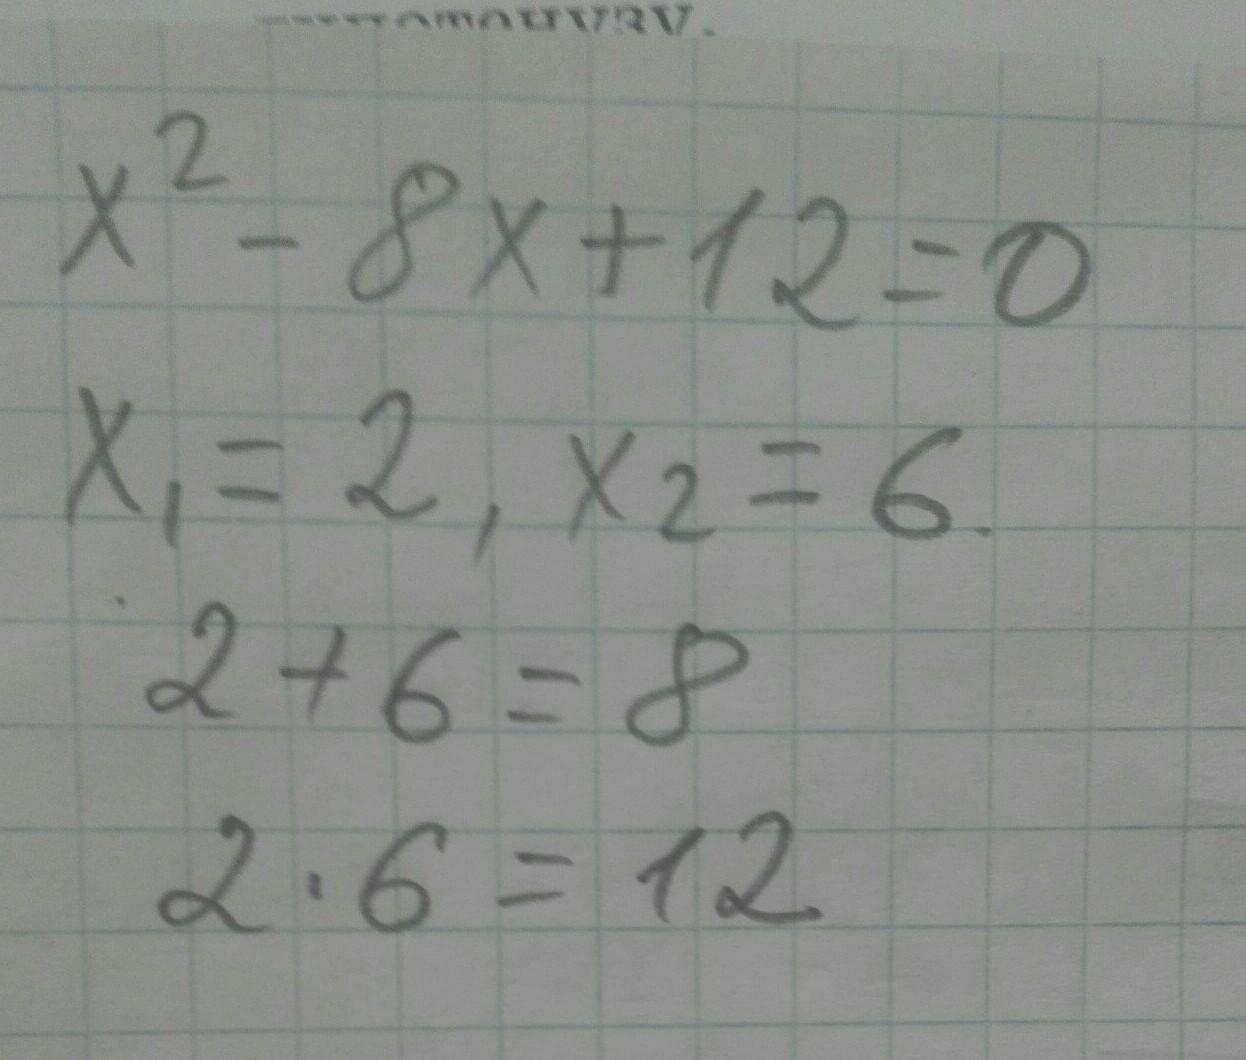 x² - 8x + 12 = 0
x₁ = 2, x₂ = 6.
2 + 6 = 8
2 · 6 = 12